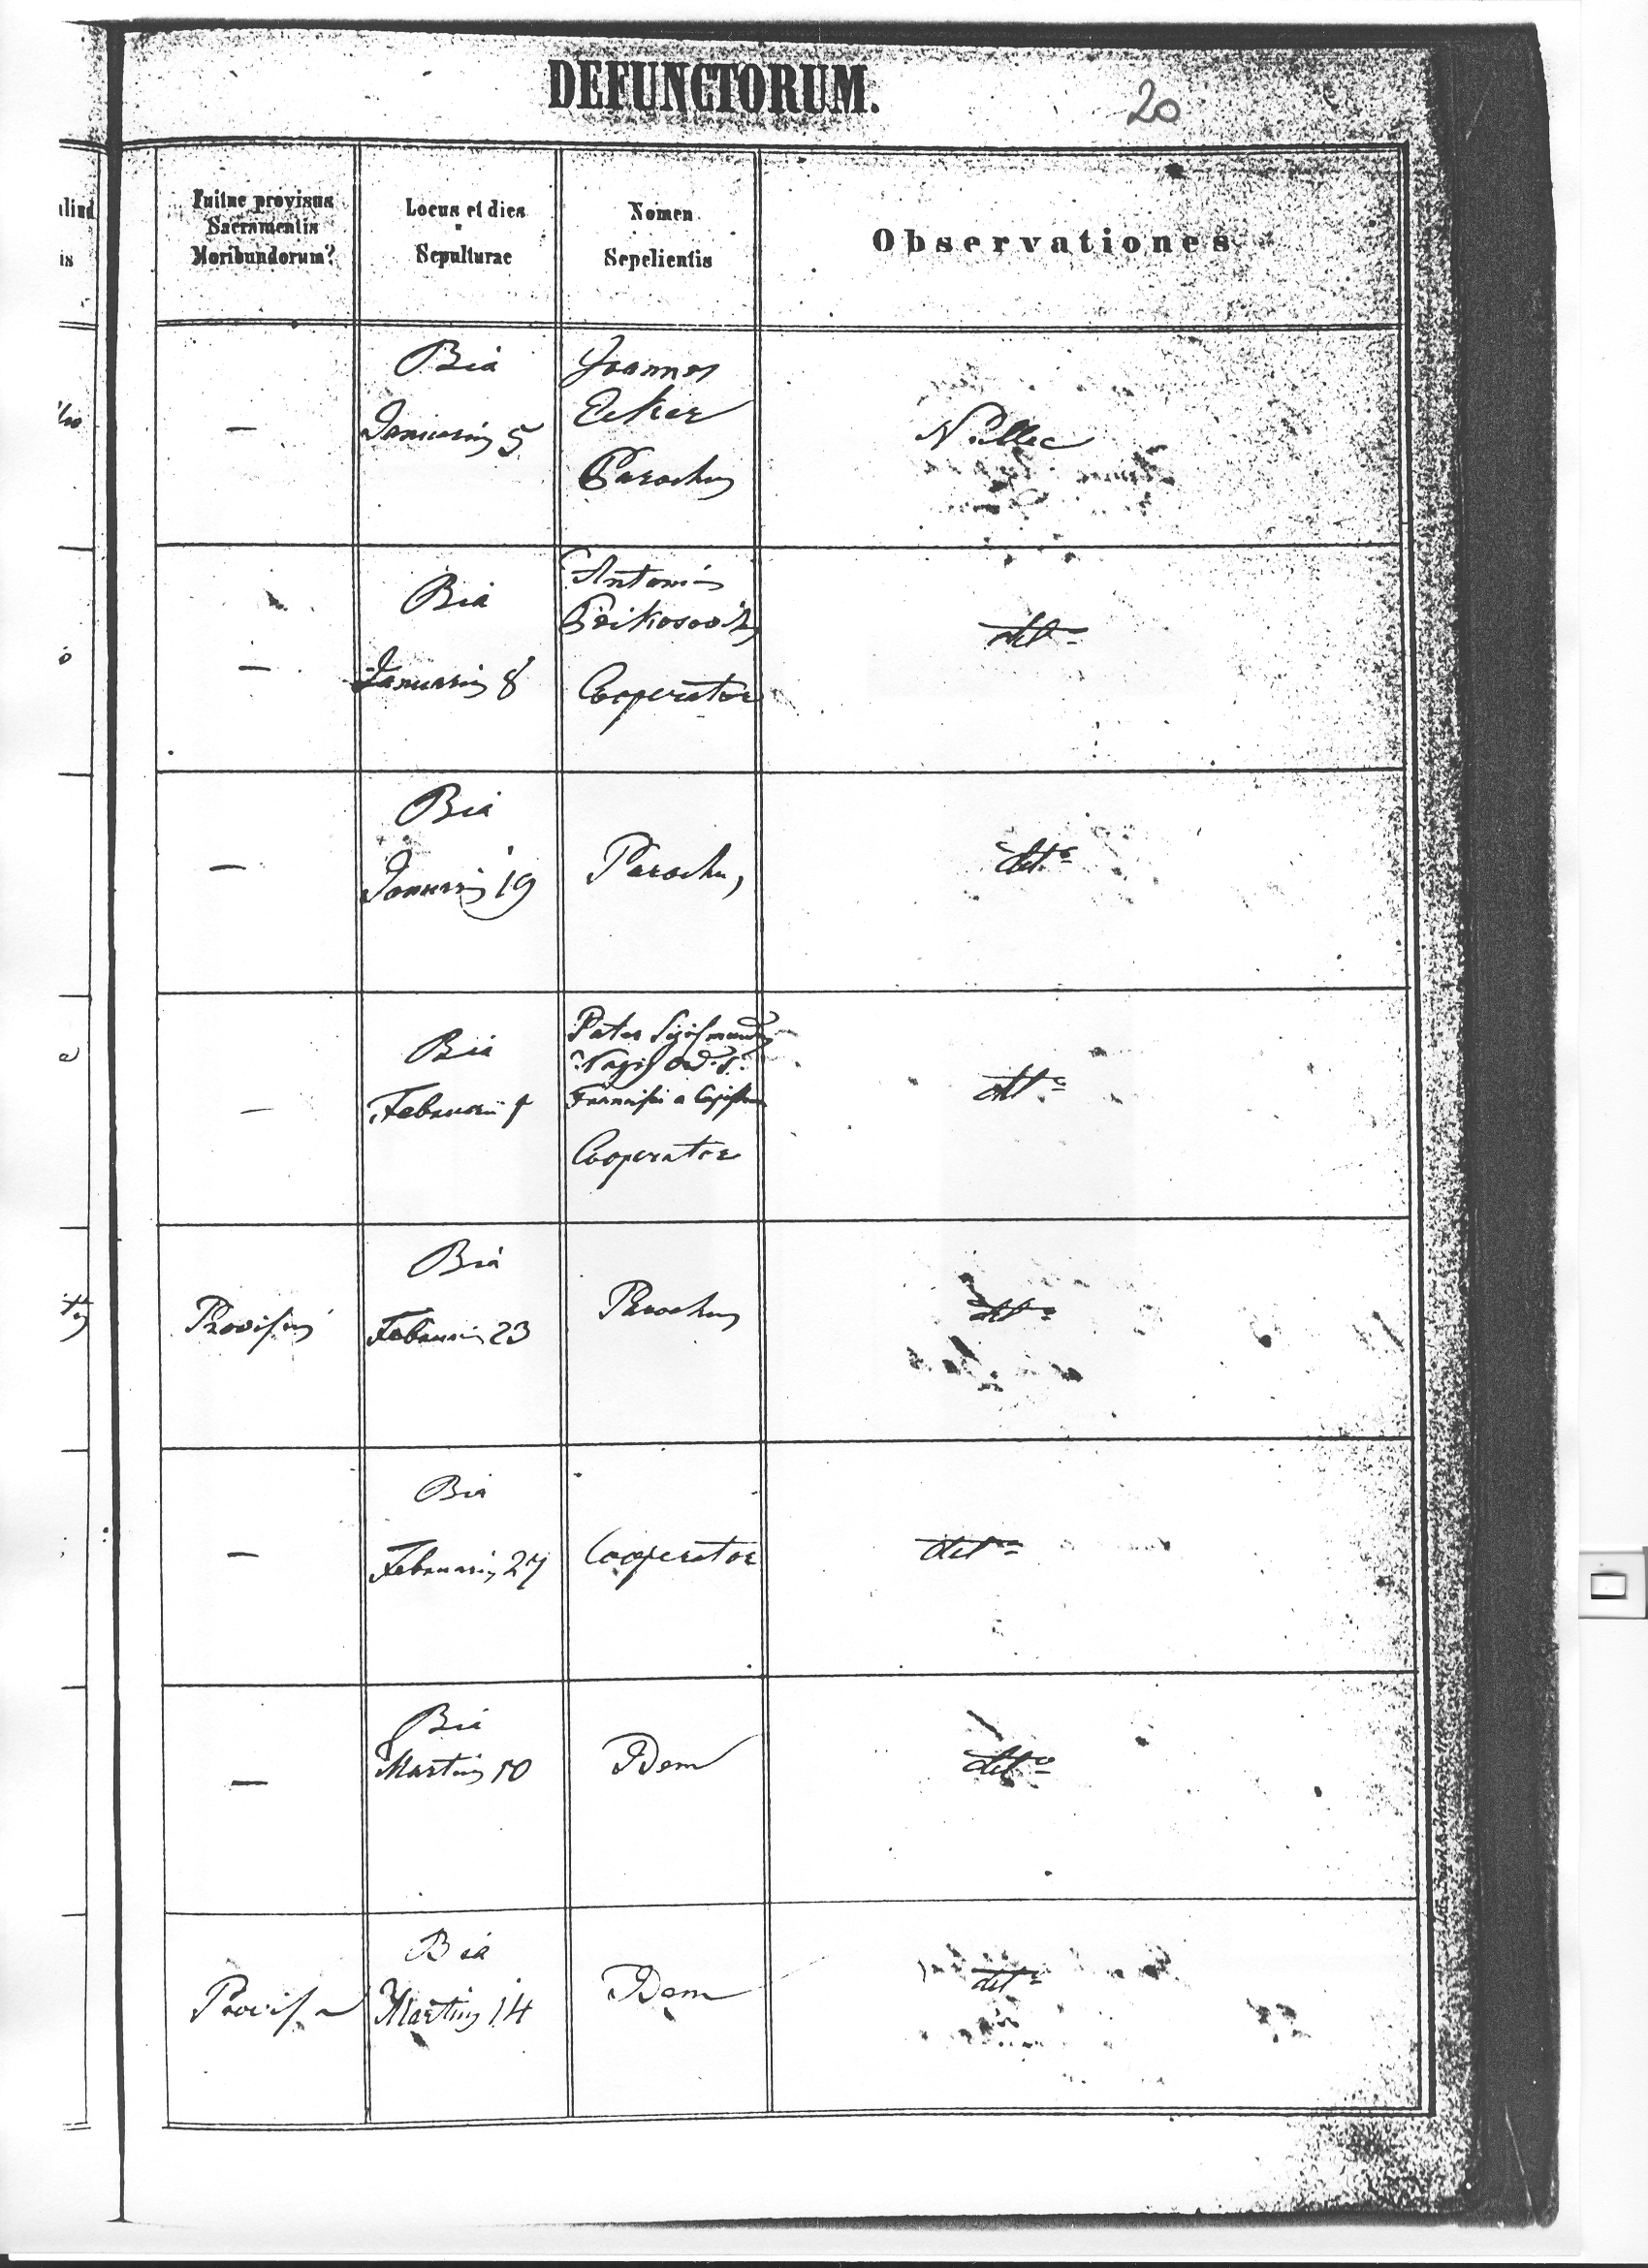 DEFUNCTORUM.
20
Fuitne provisus
Sacramentis
Moribundorum?
Locus et dies
Sepulturae
Nomen
Sepelientis
Observationes
aliud
is
—
Bia
Januarius 5
Joannes
Ecker
Parochus
Nullae
—
Bia
Januarius 8
Antonius
Cooperator
detto
—
Bia
Januarius 19
Parochus
detto
—
Bia
Februarii
Pater Sigismundus
Nagy Ord. S.
Francisci a
Cooperator
detto
Provisus
Bia
Februarius 23
Parochus
detto
—
Bia
Februarius 27
Cooperator
detto
—
Bia
Martius 10
Idem
detto
Provisa
Bia
Martius 14
Idem
detto